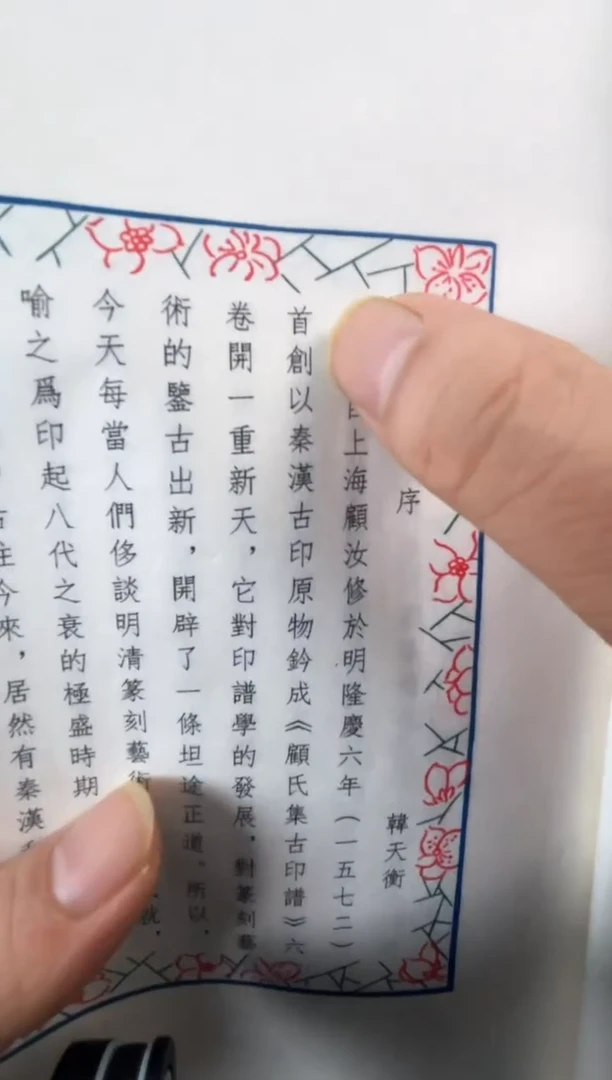 序
韓天衡
自上海顧汝修於明隆慶六年（一五七二）
首創以秦漢古印原物鈐成《顧氏集古印譜》六
卷開一重新天，它對印譜學的發展，對篆刻藝
術的鑒古出新，開辟了一條坦途正道。所以，
今天每當人們侈談明清篆刻藝術
號，
喻之爲印起八代之衰的極盛時期
往今來，居然有秦漢